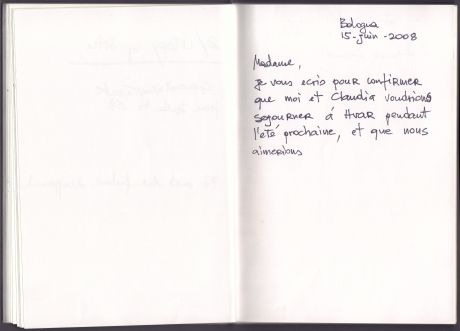 Bologna
15-juin-2008
Madame,
je vous ecris pour confirmer
que moi et Claudia voudrions
sejourner á Hvar pendant
l'été prochaine, et que nous
aimerions